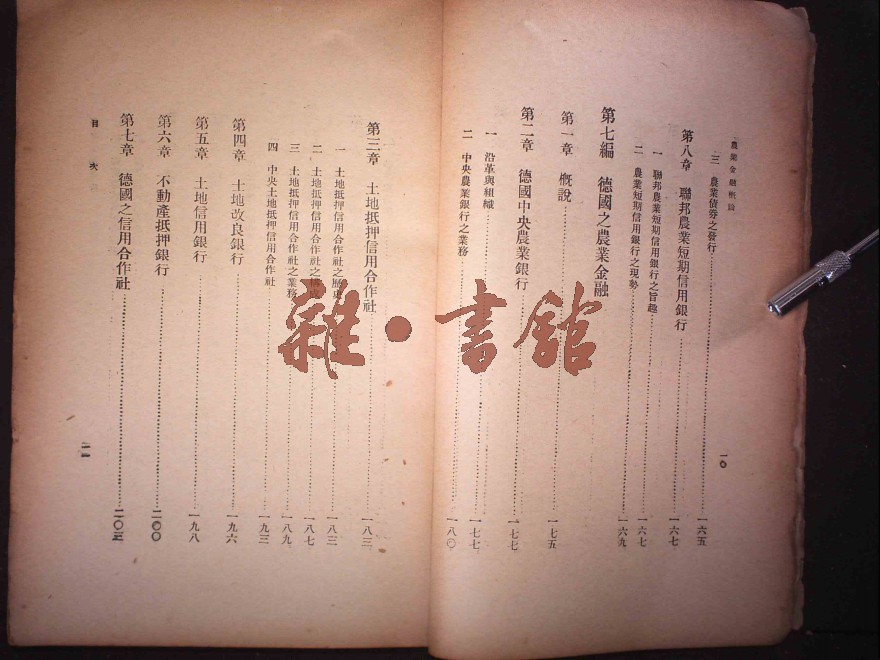 農業金融概論
三 農業債券之發行……一六五
第八章 聯邦農業短期信用銀行……一六七
一 聯邦農業短期信用銀行之旨趣……一六七
二 農業短期信用銀行之現勢……一六九
第七編 德國之農業金融
第一章 概說……一七五
第二章 德國中央農業銀行……一七七
一 沿革與組織……一七七
二 中央農業銀行之業務……一八〇
一〇
第三章 土地抵押信用合作社……一八三
一 土地抵押信用合作社之歷史……一八三
二 土地抵押信用合作社之構成……一八七
三 土地抵押信用合作社之業務……一八九
四 中央土地抵押信用合作社……一九三
第四章 土地改良銀行……一九六
第五章 土地信用銀行……一九八
第六章 不動產抵押銀行……二〇〇
第七章 德國之信用合作社……二〇五
目次
一一
雜·書館